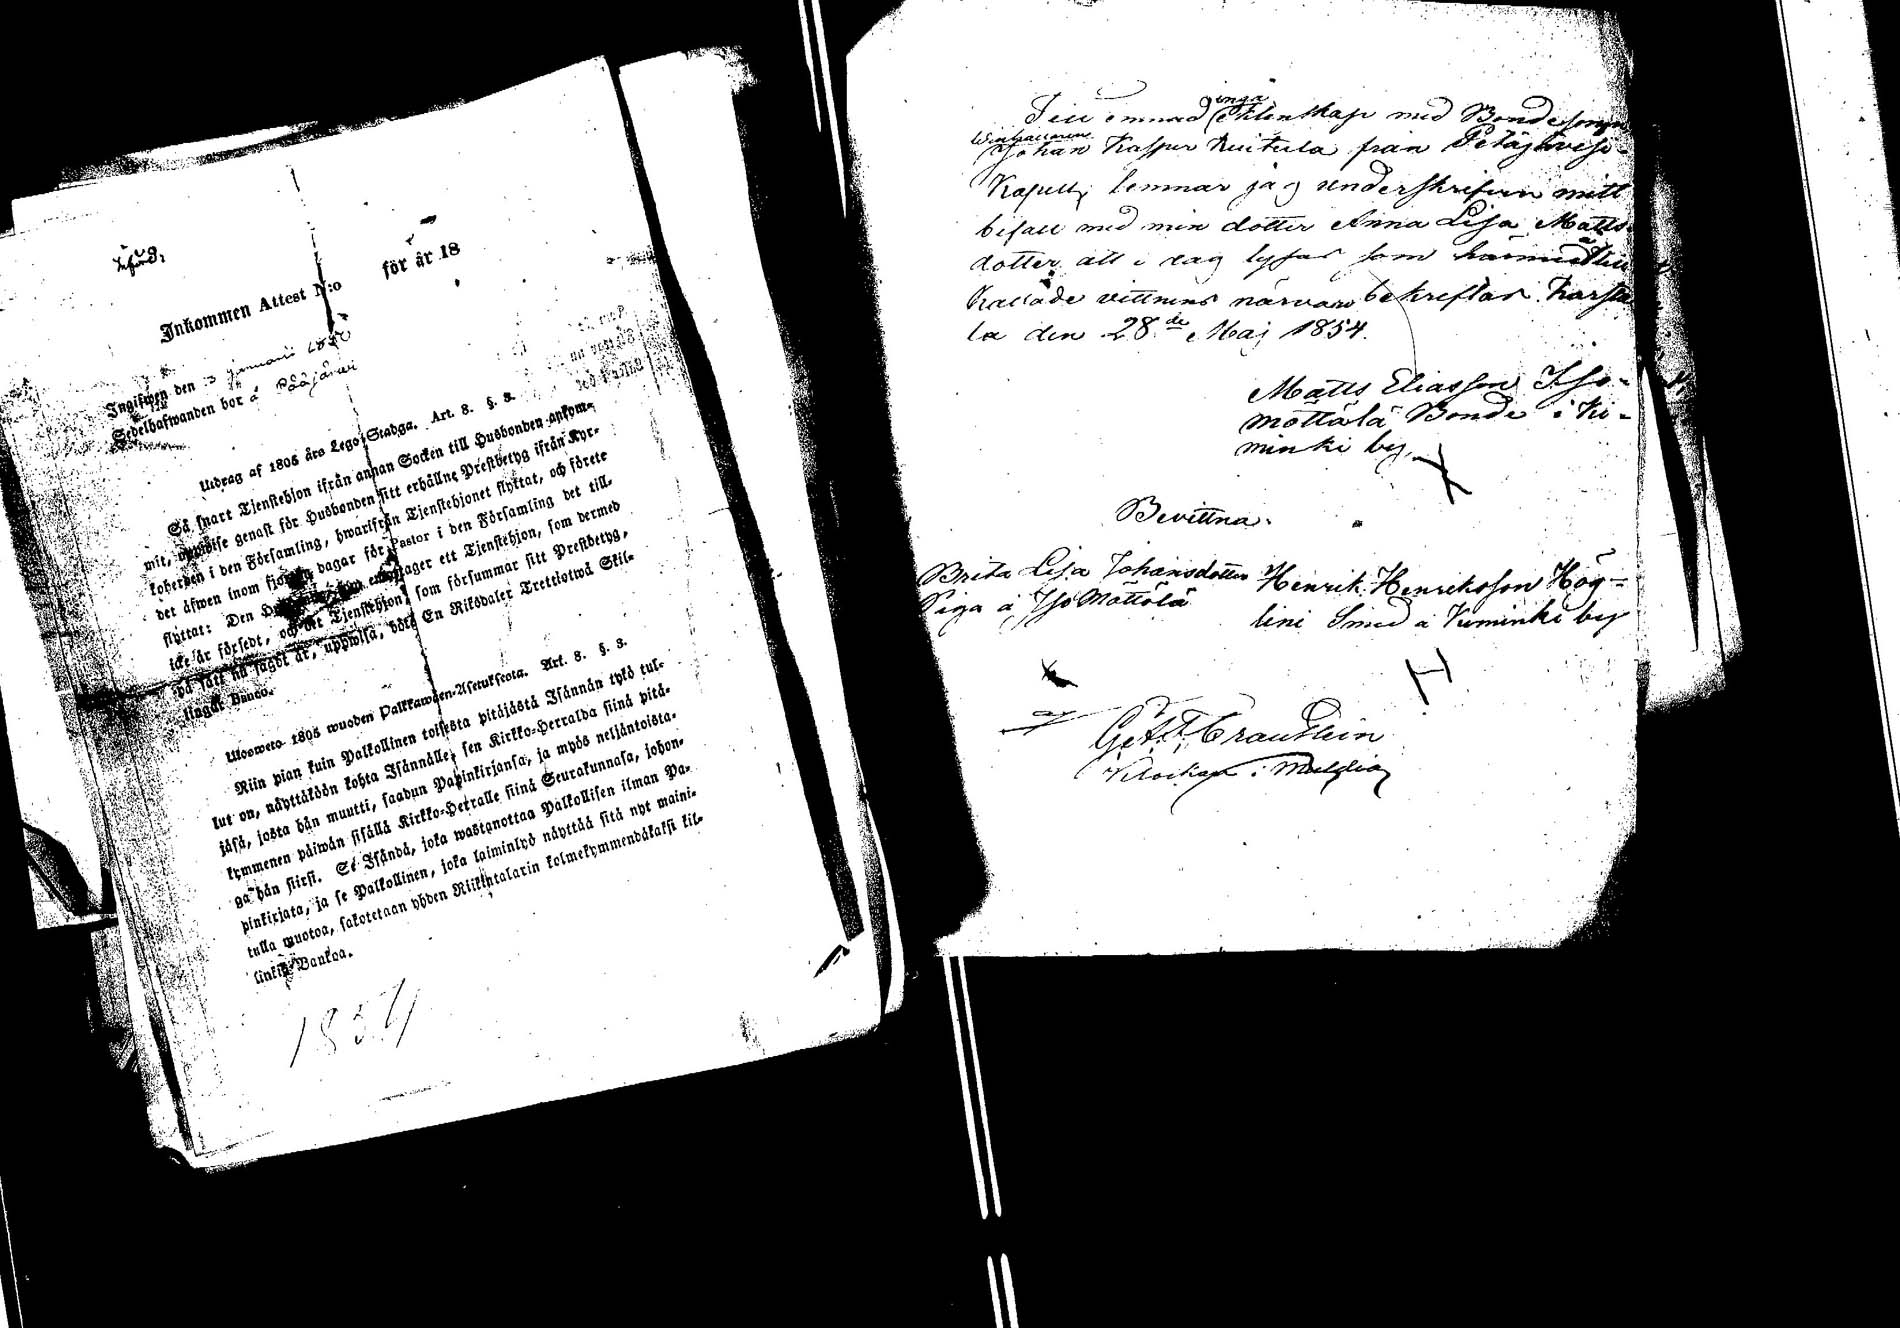 Inkommen Attest N:o för år 18
Ingifwen den 3 januarii 1850
Sedelhafwanden bor å Pääjärwi
Utdrag af 1805 års Lego-Stadga. Art. 8. §. 3.
Så snart Tjenstehjon ifrån annan Socken till Husbonden ankom-
mit, uppwise genast för Husbonden sitt erhållne Prestbetyg ifrån Kyr-
koherden i den Församling, hwarifrån Tjenstehjonet flyttat, och förete
det äfwen inom fjorton dagar för Pastor i den Församling det till-
flyttat: Den emottager ett Tjenstehjon, som dermed
icke är försedt, och det Tjenstehjon, som försummar sitt Prestbetyg,
på sätt nu sagdt är, uppwisa, böte En Riksdaler Trettiotwå Skil-
lingar Banco.
Wooweto 1805 wuoden Palkkawäen-Asetuksesta. Art. 8. §. 3.
Niin pian kuin Palkollinen toisesta pitäjästä Isännän tykö tul-
lut on, näyttäköön kohta Isännälle, sen Kirkko-Herralda siinä pitä-
jäsä, josta hän muutti, saadun Papinkirjansa, ja myös neljäntoista-
kymmenen päiwän sisällä Kirkko-Herralle siinä Seurakunnasa, johon-
ga hän siirsi. Se Isändä, joka wastanottaa Palkollisen ilman Pa-
pinkirjata, ja se Palkollinen, joka laiminlyö näyttää sitä nyt maini-
tulla muotoa, sakotetaan yhden Riikintalarin kolmekymmendäkaksi kil-
linkiä Bankoa.
1854
Till ämnad ingå Ektenskap med Bondesonen
Johan Kasper Kuitula från Petäjävesi-
Kapell, lemnar jag underskrifvin mitt
bifall med min dotter Anna Lisa Matts-
dotter, att i dag lysas som härmed till
Kallade vittnens närvaro bekreftar. Karstu-
la den 28de Maj 1854.
Matts Eliasson Iso-
möttölä Bonde i Ki-
minki by,
Bevittna.
Brita Lisa Johansdotter Henrik Henriksson Hög-
Piga å Iso Möttölä lini Smed å Kiminki by